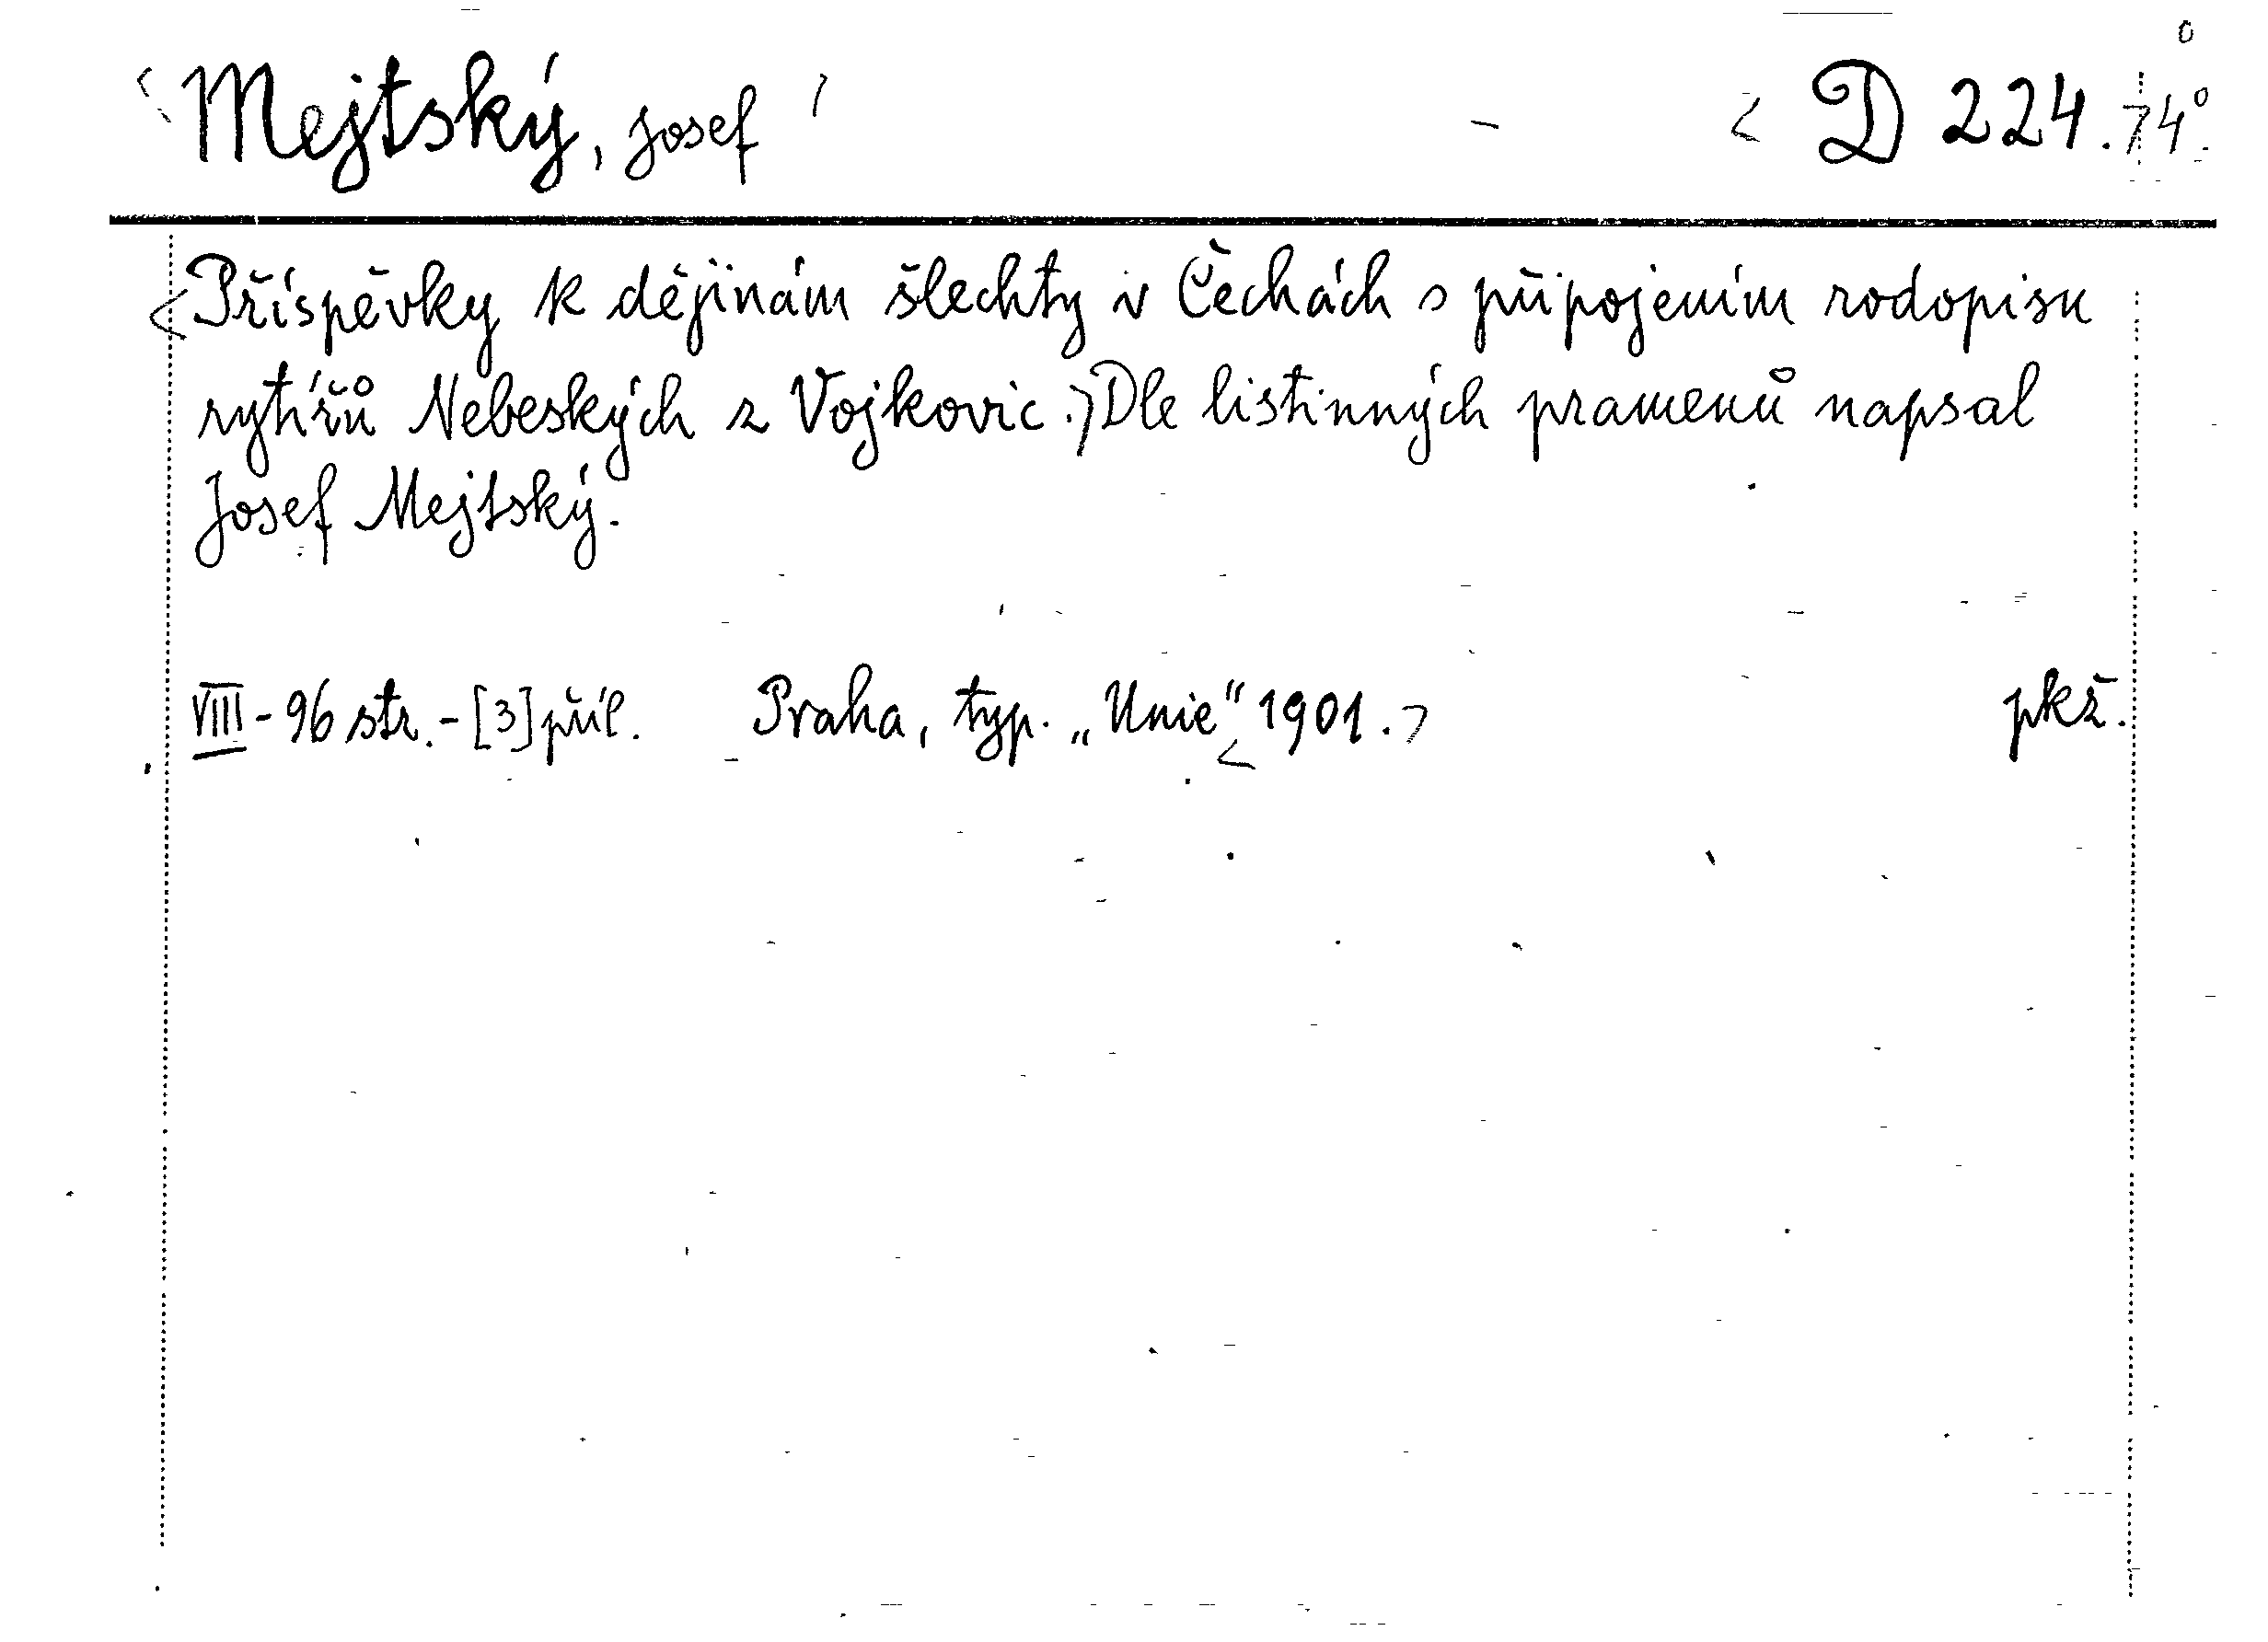 Mejtský, Josef D 224.74°
Příspěvky k dějinám šlechty v Čechách s připojením rodopisu
rytířů Nebeských z Vojkovic. Dle listinných pramenů napsal
Josef Mejtský.
VIII - 96 str. - [3] příl. Praha, typ. „Unie“ 1901. pkž.